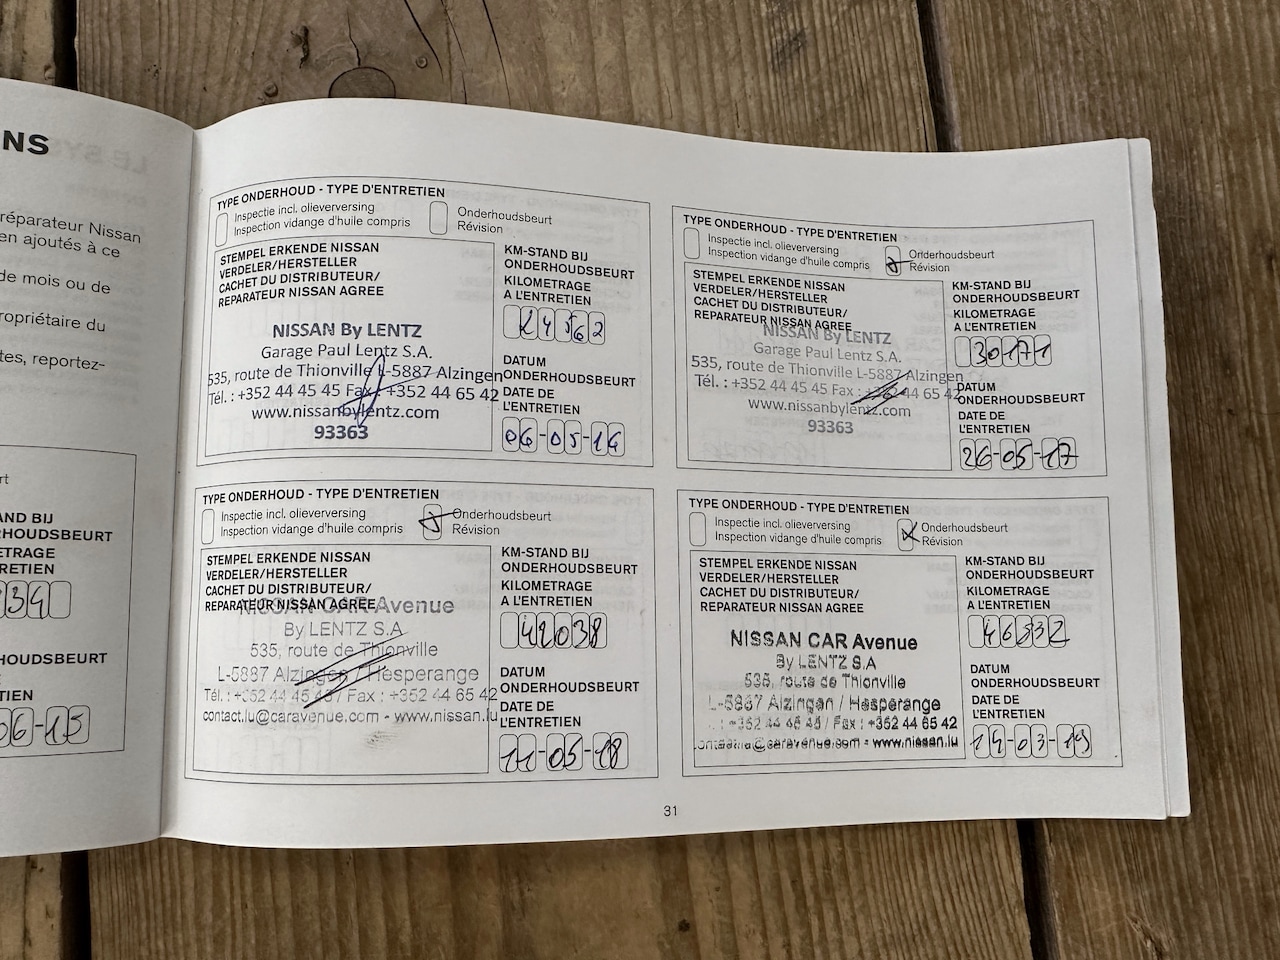 NS
réparateur Nissan
en ajoutés à ce
de mois ou de
propriétaire du
tes, reportez-
rt
AND BIJ
RHOUDSBEURT
ETRAGE
RETIEN
HOUDSBEURT
TIEN
06-15
TYPE ONDERHOUD - TYPE D'ENTRETIEN
Inspectie incl. olieverversing
Inspection vidange d'huile compris
Onderhoudsbeurt
Révision
STEMPEL ERKENDE NISSAN
VERDELER/HERSTELLER
CACHET DU DISTRIBUTEUR/
REPARATEUR NISSAN AGREE
NISSAN By LENTZ
Garage Paul Lentz S.A.
535, route de Thionville L-5887 Alzingen
Tél. : +352 44 45 45 Fax : +352 44 65 42
www.nissanbylentz.com
93363
KM-STAND BIJ
ONDERHOUDSBEURT
KILOMETRAGE
A L'ENTRETIEN
24562
DATUM
ONDERHOUDSBEURT
DATE DE
L'ENTRETIEN
06-05-16
TYPE ONDERHOUD - TYPE D'ENTRETIEN
Inspectie incl. olieverversing
Inspection vidange d'huile compris
Onderhoudsbeurt
Révision
STEMPEL ERKENDE NISSAN
VERDELER/HERSTELLER
CACHET DU DISTRIBUTEUR/
REPARATEUR NISSAN AGREE
NISSAN By LENTZ
Garage Paul Lentz S.A.
535, route de Thionville L-5887 Alzingen
Tél. : +352 44 45 45 Fax : +352 44 65 42
www.nissanbylentz.com
93363
KM-STAND BIJ
ONDERHOUDSBEURT
KILOMETRAGE
A L'ENTRETIEN
30171
DATUM
ONDERHOUDSBEURT
DATE DE
L'ENTRETIEN
26-05-17
TYPE ONDERHOUD - TYPE D'ENTRETIEN
Inspectie incl. olieverversing
Inspection vidange d'huile compris
Onderhoudsbeurt
Révision
STEMPEL ERKENDE NISSAN
VERDELER/HERSTELLER
CACHET DU DISTRIBUTEUR/
REPARATEUR NISSAN AGREE
NISSAN CAR Avenue
By LENTZ S.A
535, route de Thionville
L-5887 Alzingen / Hesperange
Tél. : +352 44 45 45 / Fax : +352 44 65 42
contact.lu@caravenue.com - www.nissan.lu
KM-STAND BIJ
ONDERHOUDSBEURT
KILOMETRAGE
A L'ENTRETIEN
42038
DATUM
ONDERHOUDSBEURT
DATE DE
L'ENTRETIEN
11-05-18
TYPE ONDERHOUD - TYPE D'ENTRETIEN
Inspectie incl. olieverversing
Inspection vidange d'huile compris
Onderhoudsbeurt
Révision
STEMPEL ERKENDE NISSAN
VERDELER/HERSTELLER
CACHET DU DISTRIBUTEUR/
REPARATEUR NISSAN AGREE
NISSAN CAR Avenue
By LENTZ S.A
535, route de Thionville
L-5887 Alzingen / Hesperange
: +352 44 45 45 / Fax : +352 44 65 42
caravenue.com - www.nissan.lu
KM-STAND BIJ
ONDERHOUDSBEURT
KILOMETRAGE
A L'ENTRETIEN
46332
DATUM
ONDERHOUDSBEURT
DATE DE
L'ENTRETIEN
14-03-19
31